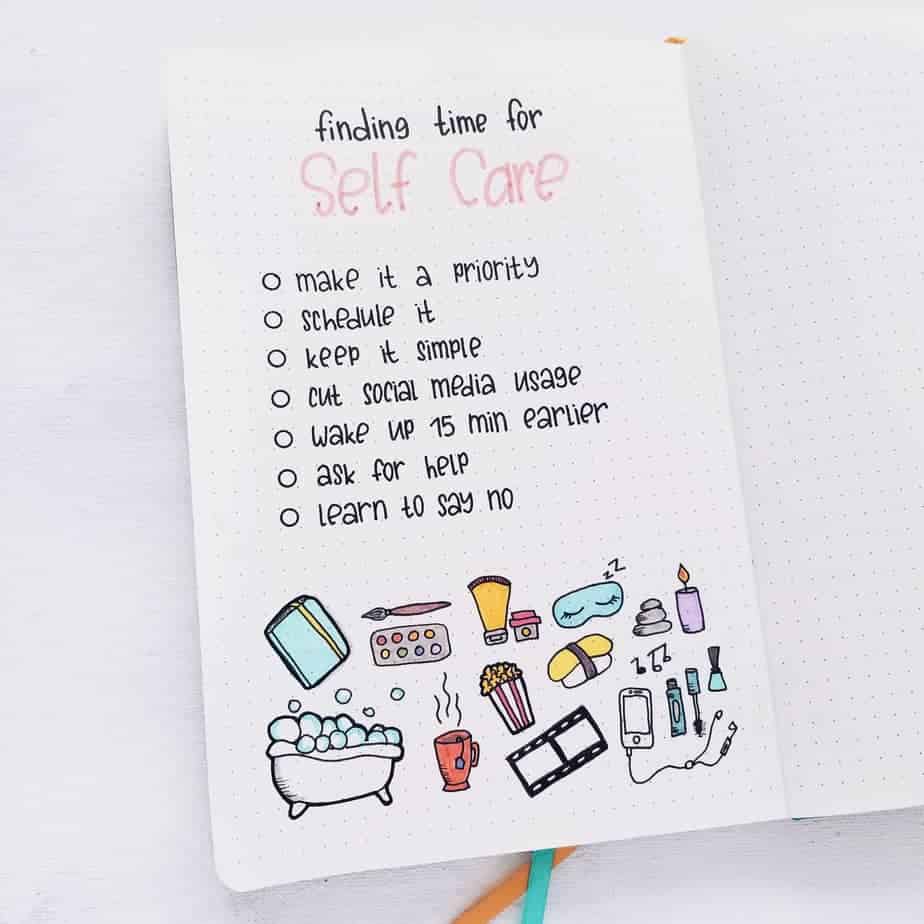 finding time for
Self Care
make it a priority
schedule it
keep it simple
cut social media usage
wake up 15 min earlier
ask for help
learn to say no
zz